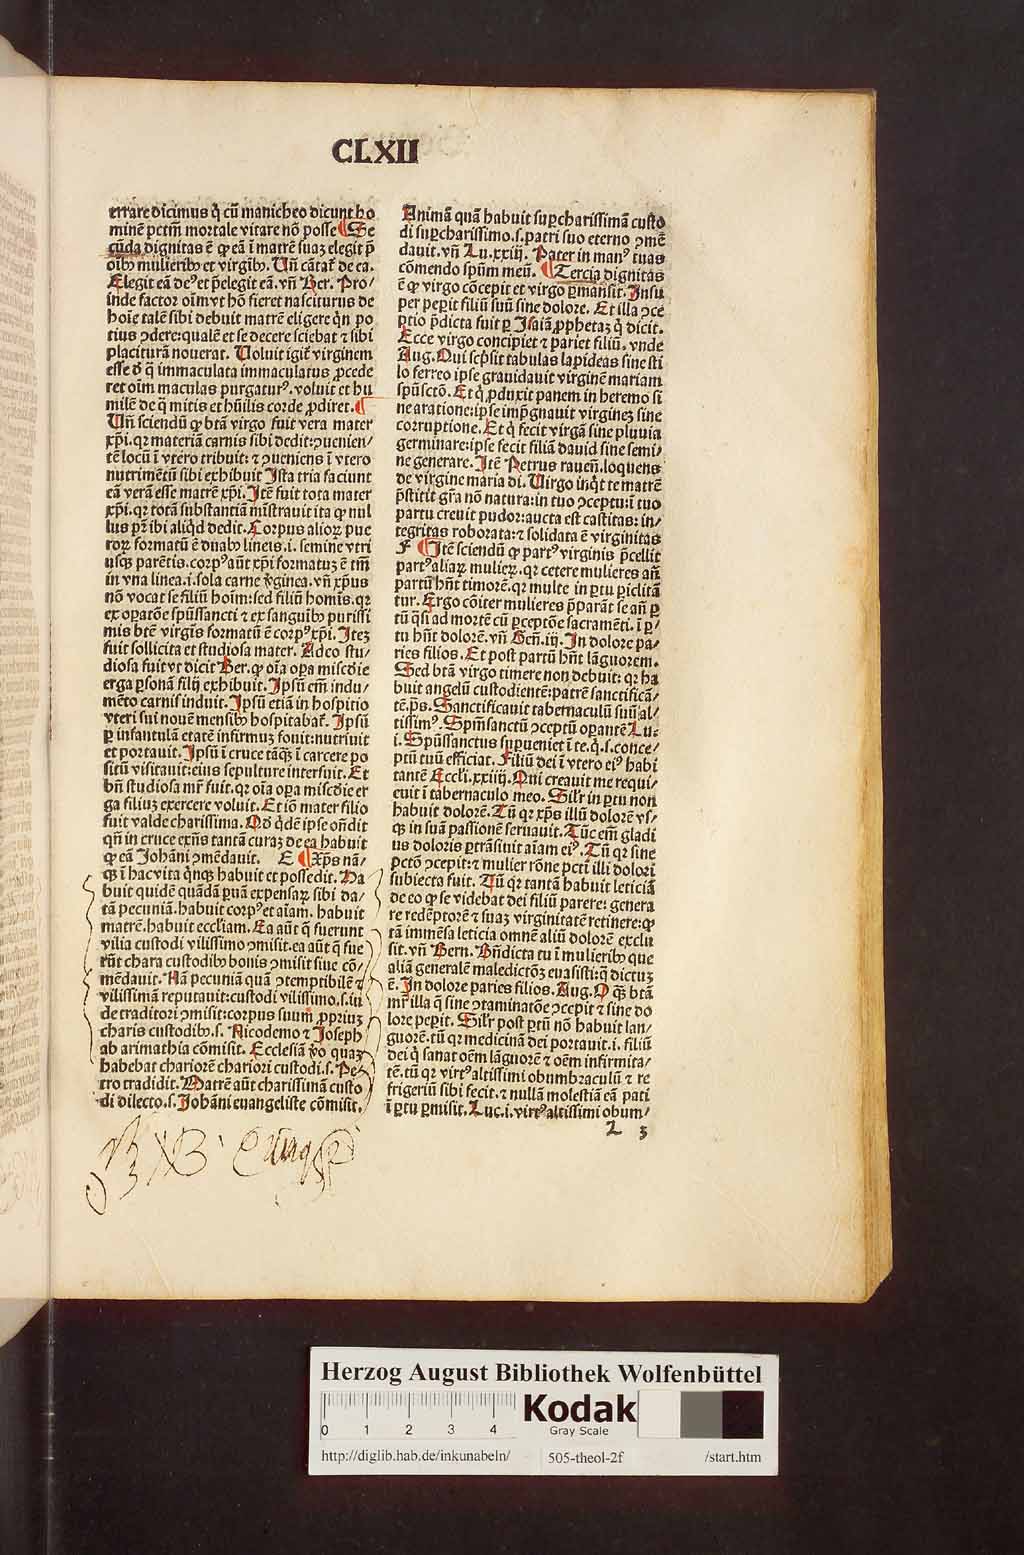 CLXII
errare dicimus q̇ cū manicheo dicunt ho
minē pctm̄ mortale vitare nō posse ¶ Se
cūda dignitas ē ꝙ eā ī matrē suaꝫ elegit p̄
oībꝰ mulieribꝰ et virgībꝰ. Uñ cātat̄ de ea.
Elegit eā deꝰ et p̄elegit eā. vñ Ber. Pro/
inde factor oīm vt hō fieret nasciturus de
hoīe talē sibi debuit matrē eligere q̄n po
tius ↄdere: qualē et se decere sciebat ⁊ sibi
placiturā nouerat. Uoluit igit̄ virginem
esse d̄ q̄ immaculata immaculatus ꝓcede
ret oīm maculas purgaturꝰ. voluit et hu
milē de q̄ mitis et hūilis corde ꝓdiret. ¶
Uñ sciendū ꝙ btā virgo fuit vera mater
xp̄i. qꝛ materiā carnis sibi dedit: ↄuenien/
tē locū ī vtero tribuit: ⁊ ↄueniens ī vtero
nutrimētū sibi exhibuit Ista tria faciunt
eā verā esse matrē xp̄i. Itē fuit tota mater
xp̄i. qꝛ totā substantiā mīstrauit ita ꝙ nul
lus pr̄ ibi aliq̇d dedit. Corpus alioꝝ pue
roꝝ formatū ē duabꝰ lineis. i. semine vtri
usqꝫ parētis. corpꝰ aūt xp̄i formatuꝫ ē tm̄
in vna linea. i. sola carne v̄ginea. vñ xp̄us
nō vocat se filiū hoīm: sed filiū homīs. qꝛ
ex oꝑatōe spūssancti ⁊ ex sanguībꝰ purissi
mis btē virgīs formatū ē corpꝰ xp̄i. Iteꝫ
fuit sollicita et studiosa mater. Adeo stu/
diosa fuit vt dicit Ber. ꝙ oīa oꝑa mīscd̄ie
erga ꝑsonā filij exhibuit. Ipsū em̄ indu/
mēto carnis induit. Ipsū etiā in hospitio
vteri sui nouē mensibꝰ hospitabat̄. Ipsū
ꝑ infantulā etatē infirmuꝫ fouit: nutriuit
et portauit. Ipsū ī cruce tāq̄ꝫ ī carcere po
sitū visitauit: eius sepulture interfuit. Et
bn̄ studiosa mr̄ fuit. qꝛ oīa oꝑa mīscd̄ie er
ga filiuꝫ exercere voluit. Et iō mater filio
fuit valde charissima. Qd̄ q̇dē ipse on̄dit
qn̄ in cruce exn̄s tantā curaꝫ de ea habuit
ꝙ eā Johāni ↄmēdauit. E ¶ Xp̄s nā/
qꝫ ī hac vita q̇nqꝫ habuit et possedit. Ha
buit quidē quādā ꝑuā expensaꝝ sibi da/
tā pecuniā. habuit corpꝰ et aīam. habuit
matrē. habuit eccl̄iam. Ea aūt q̄ fuerunt
vilia custodi vilissimo ↄmisit. ea aūt q̄ fue
rūt chara custodibꝰ bonis ↄmisit siue cō/
mēdauit. Nā pecuniā quā ↄtemptibilē ⁊
vilissimā reputauit: custodi vilissimo. s. iu
de traditori ↄmisit: corpus suum ꝓpriuꝫ
charis custodibꝰ. s. Nicodemo ⁊ Joseph
ab arimathia cōmisit. Ecclesiā v̄o quaꝫ
habebat chariorē chariori custodi. s. Pe/
tro tradidit. Matrē aūt charissimā custo
di dilecto. s. Johāni euangeliste cōmisit.
Animā quā habuit suꝑcharissimā custo
di suꝑcharissimo. s. patri suo eterno ↄmē
dauit. vñ Lu. xxiij. Pater in manꝰ tuas
cōmendo spūm meū. ¶ Tercia dignitas
ē ꝙ virgo cōcepit et virgo ꝑmansit. Insu
per peꝑit filiū suū sine dolore. Et illa ↄce
ptio p̄dicta fuit ꝑ Isaiā ꝓphetaꝫ q̇ dicit.
Ecce virgo concipiet ⁊ pariet filiū. vnde
Aug. Qui scp̄sit tabulas lapideas sine sti
lo ferreo ipse grauidauit virginē mariam
spūsctō. Et q̇ ꝓduxit panem in heremo si
ne aratione: ipse imp̄gnauit virgineꝫ sine
corruptione. Et q̇ fecit virgā sine pluuia
germinare: ipse fecit filiā dauid sine semi/
ne generare. Itē Petrus rauen̄. loquens
de virgine maria di. Uirgo inq̇t te matrē
p̄stitit gr̄a nō natura: in tuo ↄceptu: ī tuo
partu creuit pudor: aucta est castitas: in/
tegritas roborata: ⁊ solidata ē virginitas
F ¶ Itē sciendū ꝙ partꝰ virginis p̄cellit
partꝰ aliaꝝ mulieꝝ. qꝛ cetere mulieres an̄
partū hn̄t timorē. qꝛ multe in ꝑtu ꝑiclitā
tur. Ergo cōiter mulieres p̄parāt se an̄ ꝑ
tū q̄si ad mortē cū ꝑceptōe sacramēti. ī ꝑ/
tu hn̄t dolorē. vñ Gen̄. iij. In dolore pa/
ries filios. Et post partū hn̄t lāguorem.
Sed btā virgo timere non debuit: qꝛ ha
buit angelū custodientē: patrē sanctificā/
tē. p̄s. Sanctificauit tabernaculū suū al/
tissimꝰ. Spm̄sanctū ↄceptū oꝑantē Lu.
i. Spūssanctus suꝑueniet ī te. q̇. s. conce/
ptū tuū efficiat. Filiū dei ī vtero eiꝰ habi
tantē Eccl̄i. xxiiij. Qui creauit me requi/
euit ī tabernaculo meo. Sil̄r in ꝑtu non
habuit dolorē. Tū qꝛ xp̄s illū dolorē vs/
qꝫ in suā passionē seruauit. Tūc em̄ gladi
us doloris ꝑtrāsiuit aīam eiꝰ. Tū qꝛ sine
pctō ↄcepit: ⁊ mulier rōne pcti illi dolori
subiecta fuit. Tū qꝛ tantā habuit leticiā
de eo ꝙ se videbat dei filiū parere: genera
re redēptorē ⁊ suaꝫ virginitatē retinere: ꝙ
tā immēsa leticia omnē aliū dolorē exclu
sit. vñ Bern. Bn̄dicta tu ī mulieribꝰ que
aliā generalē maledictōꝫ euasisti: q̄ dictuꝫ
ē. In dolore paries filios. Aug. O q̄ꝫ btā
mr̄ illa q̄ sine ↄtaminatōe ↄcepit ⁊ sine do
lore peꝑit. Sil̄r post ꝑtū nō habuit lan/
guorē. tū qꝛ medicinā dei portauit. i. filiū
dei q̇ sanat oēm lāguorē ⁊ oēm infirmita/
tē. tū qꝛ virtꝰ altissimi obumbraculū ⁊ re
frigeriū sibi fecit. ⁊ nullā molestiā eā pati
ī ꝑtu ꝑmisit. Luc. i. virtꝰ altissimi obum/
2 3
Herzog August Bibliothek Wolfenbüttel
0 1 2 3 4
Kodak
Gray Scale
http://diglib.hab.de/inkunabeln/ 505-theol-2f /start.htm